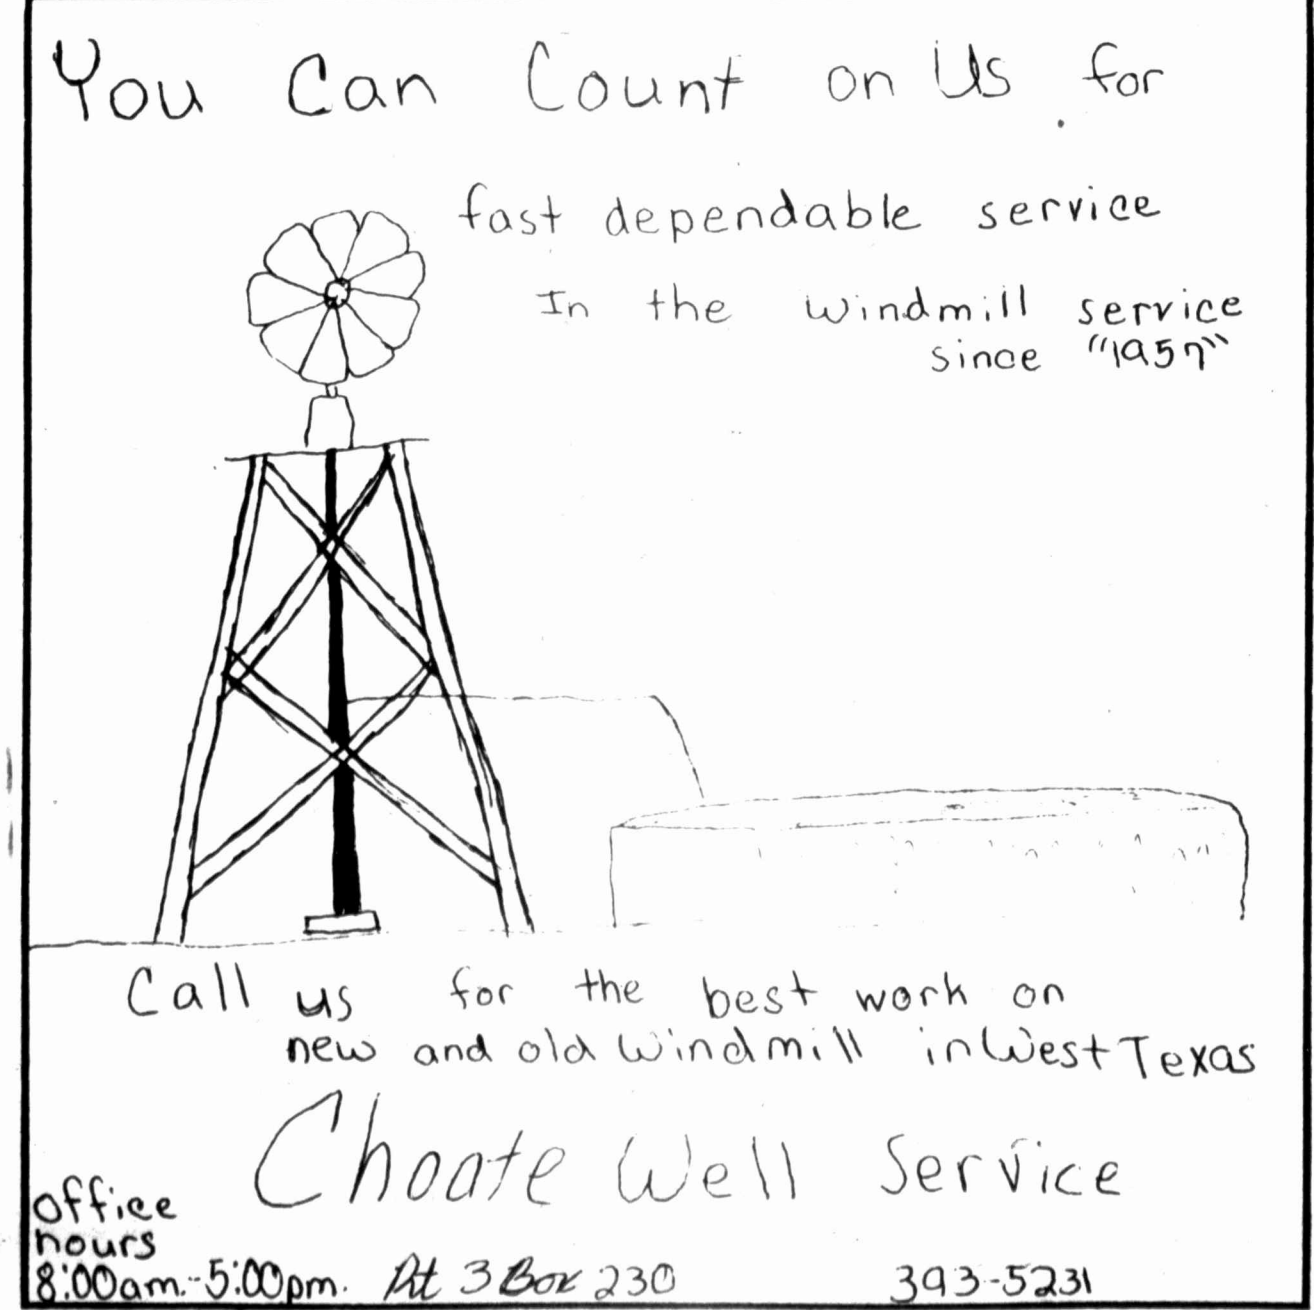 You Can Count on Us for
fast dependable service
In the windmill service
since "1957"
Call us for the best work on
new and old windmill in West Texas
Choate Well Service
office
hours
8:00am.-5:00pm. Rt 3 Box 230 393-5231